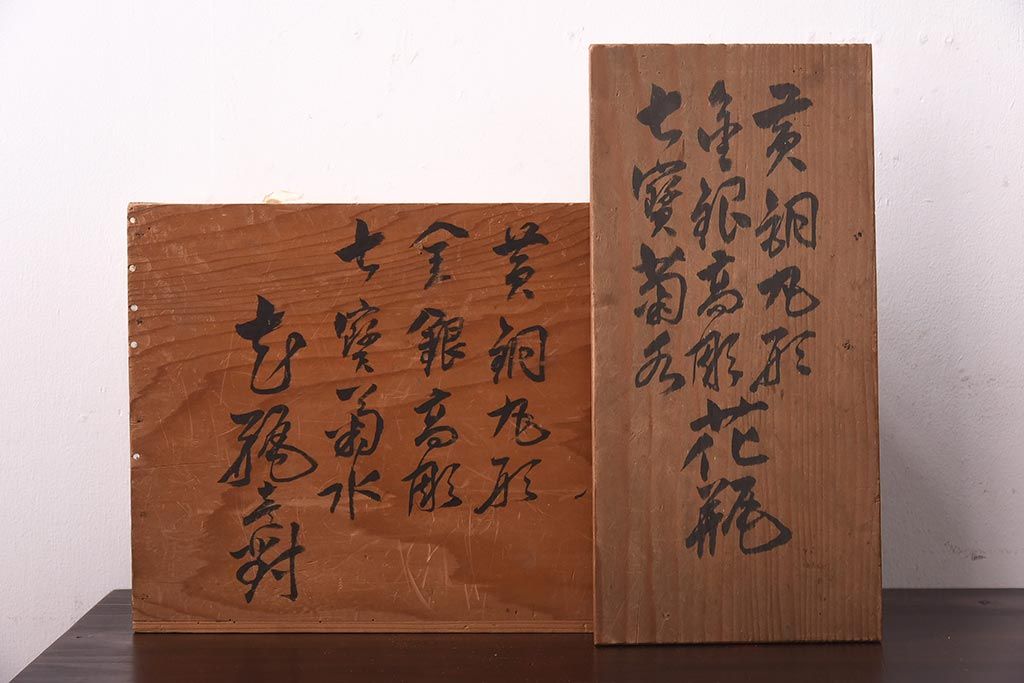 黄銅丸形
金銀高彫
七寳菊水
花瓶壹對
黄銅丸形
金銀高彫
七寳菊水
花瓶